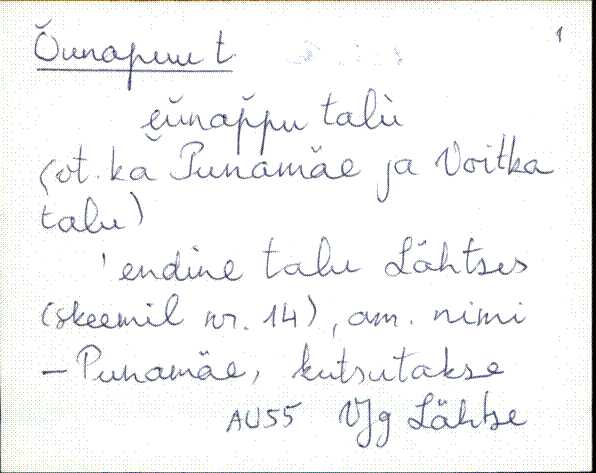 Õunapuu t 1
eŭnap̆pu talù
(vt. ka Punamäe ja Voitka
talu)
'endine talu Lähtses
(skeemil nr. 14), am. nimi
– Punamäe, kutsutakse
AU55 VJg Lähtse